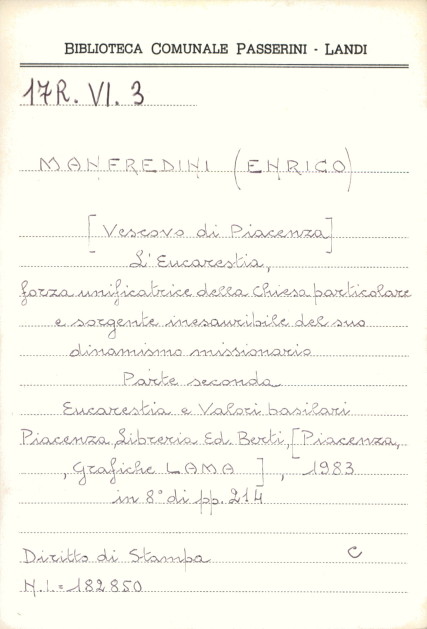 BIBLIOTECA COMUNALE PASSERINI - LANDI
17R. VI. 3
MANFREDINI (ENRICO)
[Vescovo di Piacenza]
L'Eucarestia,
forza unificatrice della Chiesa particolare
e sorgente inesauribile del suo
dinamismo missionario
Parte seconda
Eucarestia e Valori basilari
Piacenza, Libreria Ed. Berti, [Piacenza,
, Grafiche LAMA ] , 1983
in 8° di pp. 214
Diritto di Stampa C
N.I. = 182850